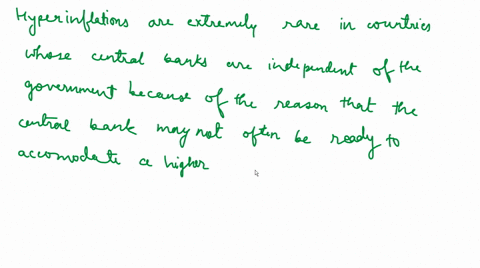 Hyperinflations are extremely rare in countries
whose central banks are independent of the
government because of the reason that the
central bank may not often be ready to
accomodate a higher